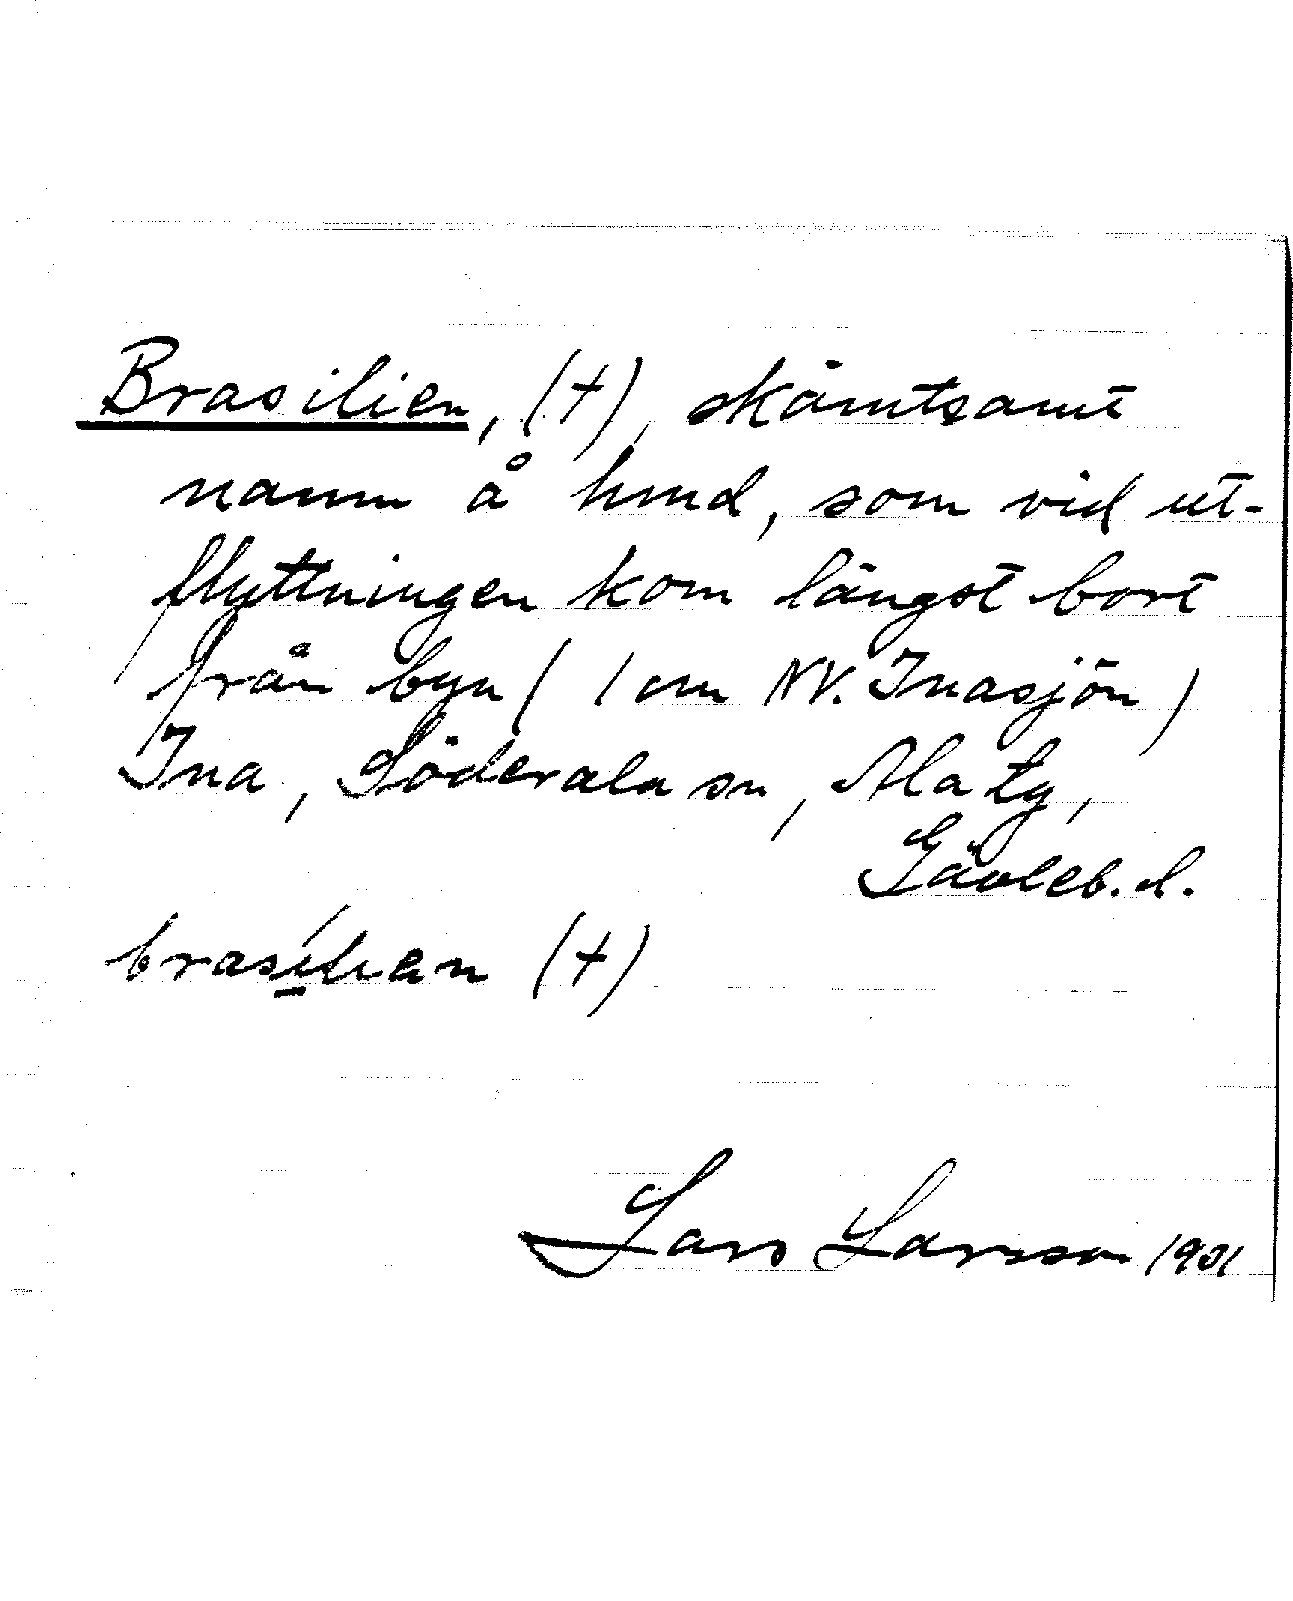 Brasilien, (+), skämtsamt
namn å hmd, som vid ut-
flyttningen kom längst bort
från byn ( 1 om NV. Inasjön )
Ina, Söderala sn, Ala tg,
Gävleb. l.
brasilien (+)
Lars Larsson 1931